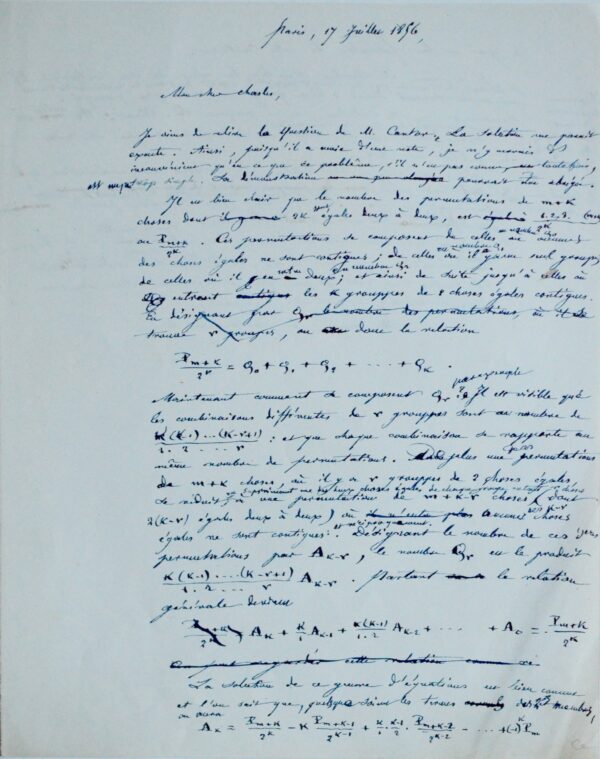 Paris, 17 Juillet 1856,
Mon cher Charles,
Je viens de lire la Question de M. Cantor, La solution me parait
exacte. Ainsi, puisqu'il a une note, je n'y
inconvénient qu'en ce que ce problème, s'il n'est pas connu, toutefois,
est La démonstration pourrait être abrégée.
Il est bien clair que le nombre des permutations de m+k
choses dont 2k sont égales deux à deux, est 1.2.3.
ou P_{m+k}/2^k. Ces permutations se composent de celles où aucunes
des choses égales ne sont contigues; de celles où il y a un seul groupe;
de celles où il y en a deux; et ainsi de suite jusqu'à celles où
entrent les k grouppes de 2 choses égales contigues.
En désignant par Q_r le nombre des permutations, où il se
trouve r grouppes, on a donc la relation
P_{m+k}/2^k = Q_0 + Q_1 + Q_2 + .... + Q_k.
paragraphe
Maintenant comment se compose Q_r? Il est visible que
les combinaisons différentes de r grouppes sont au nombre de
k(k-1)...(k-r+1)/1.2....r : et que chaque combinaison se rapporte au
même nombre de permutations. de plus une permutation
de m+k choses, où il y a r grouppes de 2 choses égales
se réduit à une permutation de m+k-r choses (dont
2(k-r) égales deux à deux) où aucunes choses
égales ne sont contigues: et réciproquement. Désignant le nombre de ces
permutations par A_{k-r}, le nombre Q_r est le produit
k(k-1)....(k-r+1)/1.2....r A_{k-r}. Partant la relation
générale devient
A_k + k/1 A_{k-1} + k(k-1)/1.2 A_{k-2} + .... + A_0 = P_{m+k}/2^k
On peut regarder cette relation comme
La solution de ce genre d'équations est bien connue
et l'on sait que, quelques soient les termes des 2ds membres,
on aura
A_k = P_{m+k}/2^k - k P_{m+k-1}/2^{k-1} + k.k-1/1.2 . P_{m+k-2}/2^{k-2} - ... +(-1)^k P_m